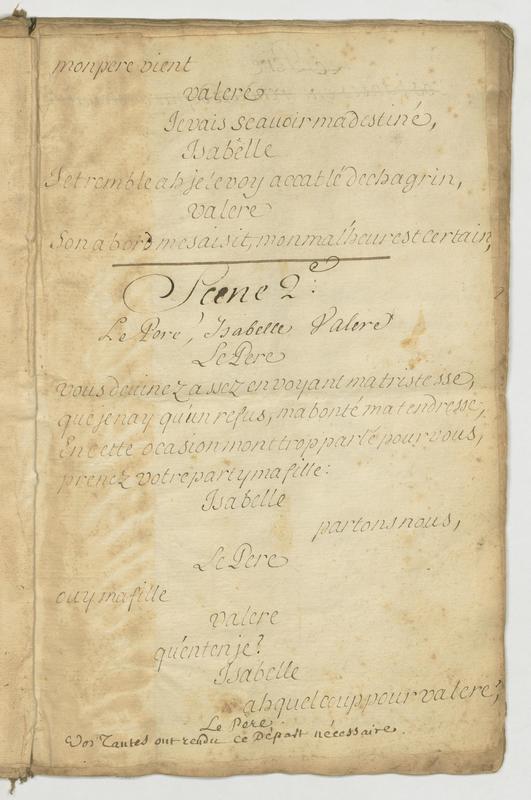 mon pere vient
valere
Je vais scavoir ma destiné,
Isabelle
Je tremble ah je le voy accablé de chagrin,
valere
Son abord me saisit, mon malheur est certain,
Scene 2e:
Le Pere, Isabelle Valere
Le Pere
vous devinez assez en voyant ma tristesse,
que je nay qu'un refus, ma bonté ma tendresse,
En cette ocasion mont trop parlé pour vous,
prenez votre party ma fille:
Isabelle
partons nous,
Le Pere
ouy ma fille
valere
qu'entenje?
Isabelle
ah quel coup pour valere,
Le Pere
Vos Tantes ont rendu ce Départ nécessaire.